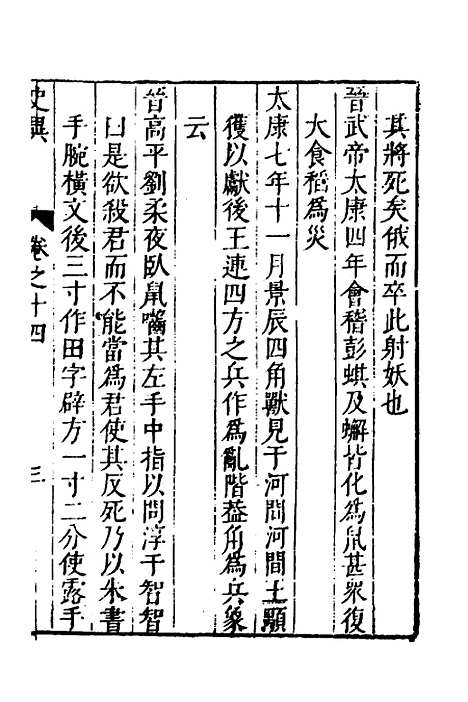 其將死矣俄而卒此射妖也
晉武帝太康四年會稽彭蜞及蠏皆化為鼠甚衆復
大食稻為災
太康七年十一月景辰四角獸見于河間河間王顒
獲以獻後王連四方之兵作為亂階葢角為兵象
云
晉高平劉柔夜臥鼠嚙其左手中指以問淳于智智
曰是欲殺君而不能當為君使其反死乃以朱書
手腕橫文後三寸作田字辟方一寸二分使露手
史異 卷之十四 三